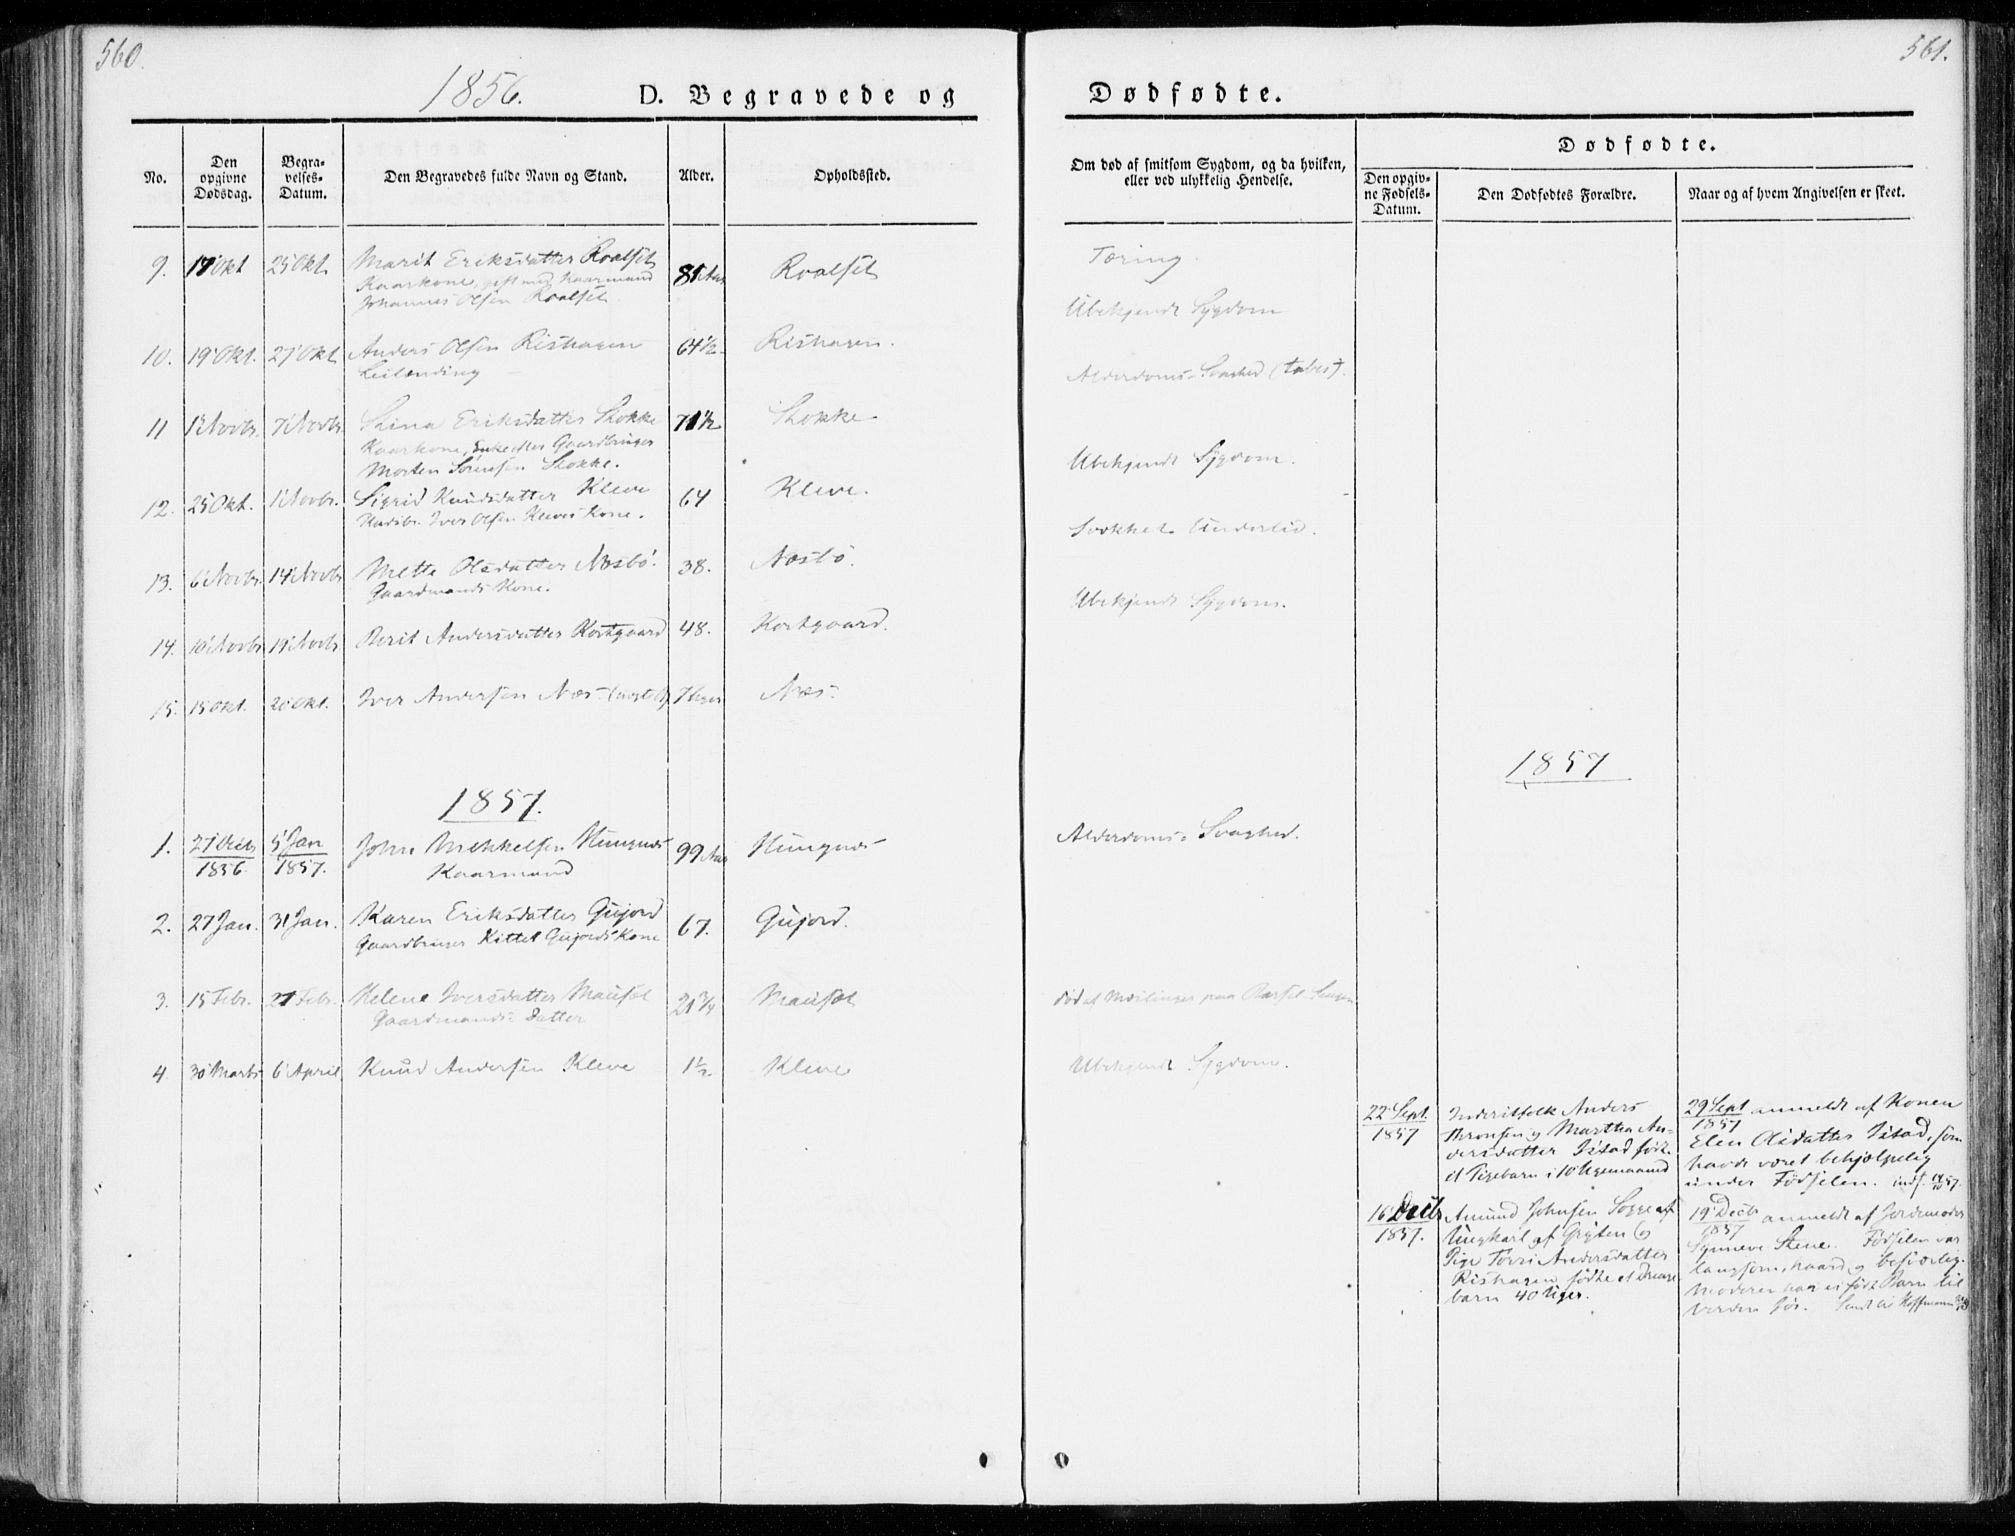 560.
561.
1856.
D. Begravede og
Dødfødte.
No.
Den opgivne Dødsdag.
Begravelses-Datum.
Den Begravedes fulde Navn og Stand.
Alder.
Opholdssted.
Om død af smitsom Sygdom, og da hvilken, eller ved ulykkelig Hendelse.
Dødfødte.
Den opgivne Fødsels-Datum.
Den Dødfødtes Forældre.
Naar og af hvem Angivelsen er skeet.
9. 19 Okt 25 Okt. Marit Eriksdatter Roalset 81 Aar Roalset Tæring.
Kaarkone, gift med Kaarmand
Johannes Olsen Roalset.
10. 19 Okt. 27 Okt Anders Olsen Rishagen 64½ Rishagen. Ubekjendt Sygdom
Leilænding
11 1 Novbr. 7 Novbr. Stina Eriksdatter Stokke 71½ Stokke Alderdoms-Svaghed (tabes).
Kaarkone, Enke efter Gaardbruger
Morten Sörensen Stokke.
12. 25 Okt. 1 Novbr. Sigrid Knudsdatter Kleve 64 Kleve. Ubekjendt Sygdom.
Iver Olsen Kleves Kone.
13. 6 Novbr. 14 Novbr Mette Olsdatter Næsbö. 38. Næsbö. Svækket Underliv.
Gaardmands Kone.
14. 10 Novbr 19 Novbr Berit Andersdatter Kortgaard 48. Kortgaard. Ubekjendt Sygdom.
15. 15 Okt. 20 Okt. Iver Andersen Næs Næs
1857.
1857
1. 27 Decbr 1856 5 Jan 1857. John Mekkelsen Hungnes 99 Aar Hungnes Alderdoms-Svaghed.
Kaarmand
2. 27 Jan. 31 Jan. Karen Eriksdatter Gujord 67. Gujord.
Gaardbruger Kittel Gujords Kone
3. 15 Febr. 21 Febr. Helene Iversdatter Mauset 21¾ Mauset död af Mæslinger paa Barsel-Sengen
Gaardmands Datter
4. 30 Marts 6 April Knud Andersen Kleve 1½ Kleve Ubekjendt Sygdom.
22 Sept. 1857
Inderstfolk Anders
og Martha An-
dersdatter Istad födt
et Pigebarn i 10 Ugemaaned
29 Sept 1857 anmeldt af Konen
Elen Olsdatter Istad, som
havde været behjælpelig
under Födselen.
16 Decbr 1857.
Amund Johnsen Sogge af
Ungkarl af Grÿten og
Pige Andersdatter
Rishagen födte et Drenge
barn 40 Uger.
19 Decbr 1857 anmeldt af Jordemoder
Synneve Stene. Födselen var
langsom, haard og besværlig.
Moderen har ei födt Barn til
Verden för. Sendt til Hoffmann